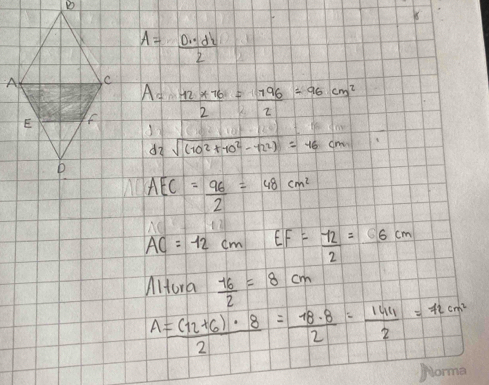 B
A = D₁ · d₂ / 2
A C
A = 12 * 16 / 2 = 196 / 2 = 96 cm²
E F
d2 √(10² + 10² - 122) = 16 cm
D
AEC = 96 / 2 = 48 cm²
AC = 12 cm EF = 12 / 2 = 6 cm
Altura 16 / 2 = 8 cm
A = (12+6) · 8 / 2 = 18 · 8 / 2 = 144 / 2 = 72 cm²
Norma